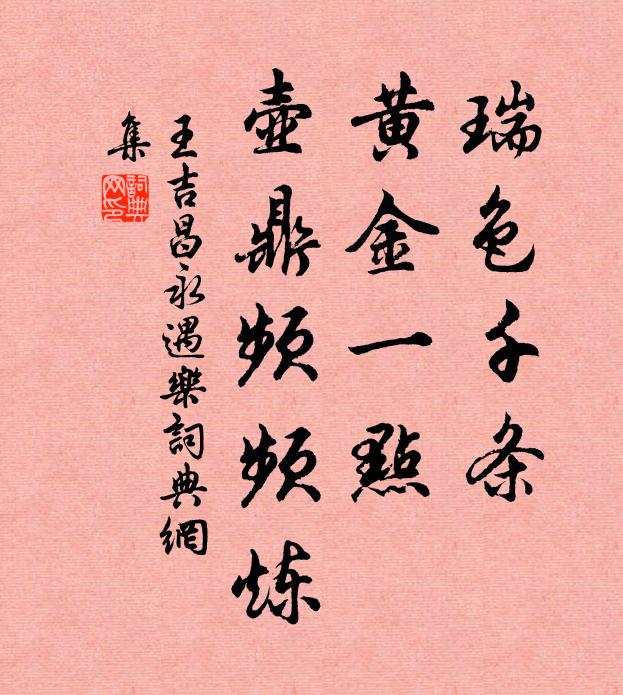 瑞色千条
黄金一點
壺鼎频频炼
王吉昌永遇樂詞典網
集
詞典
网印